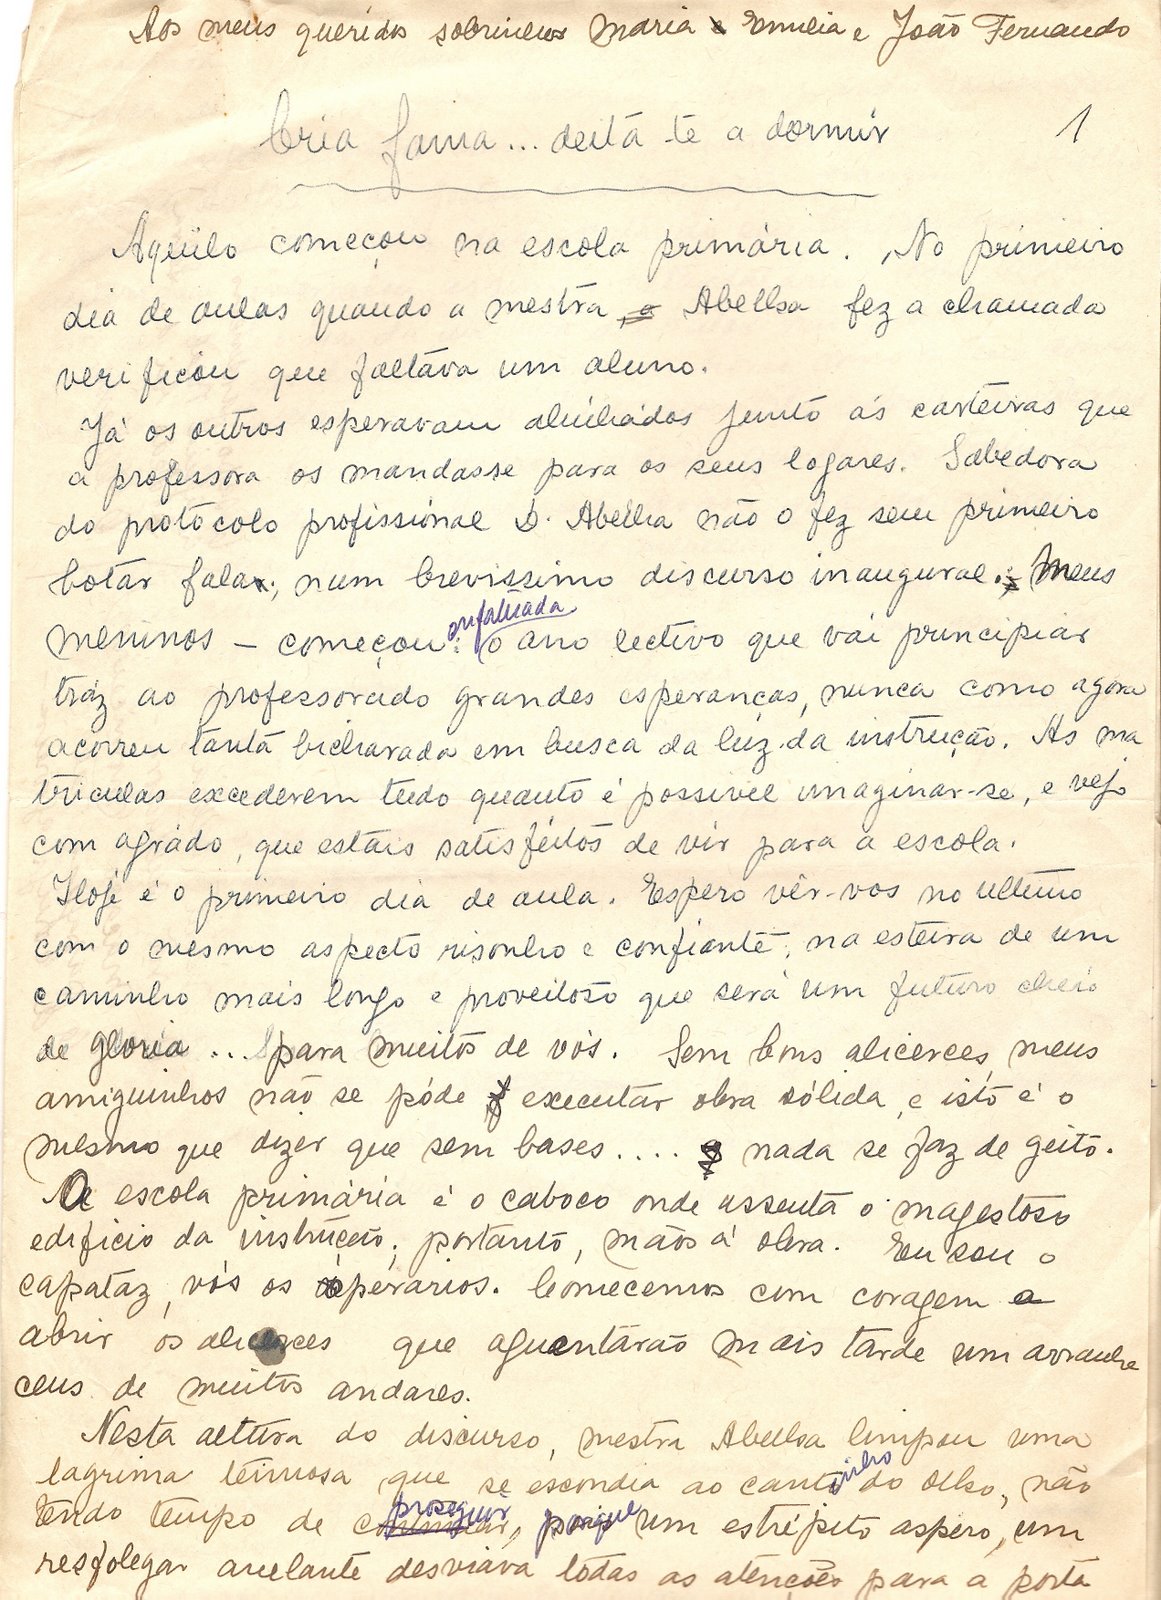 Aos meus queridos sobrinhos Maria Emilia e João Fernando
Cria fama... deita-te a dormir
1
Aquilo começou na escola primária. No primeiro
dia de aulas quando a mestra Abelha fez a chamada
verificou que faltava um aluno.
Já os outros esperavam alinhados junto ás carteiras que
a professora os mandasse para os seus logares. Sabedora
do protócolo profissional D. Abelha não o fez sem primeiro
botar fala, num brevissimo discurso inaugural. Meus
meninos — começou enfatuada: o ano lectivo que vai principiar
tráz ao professorado grandes esperanças, nunca como agora
acorreu tanta bicharada em busca da luz da instrução. As ma
triculas excederem tudo quanto é possivel imaginar-se, e vejo
com agrádo, que estais satisfeitos de vir para a escola.
Hoje é o primeiro dia de aula. Espero vêr-vos no ultimo
com o mesmo aspecto risonho e confiante, na esteira de um
caminho mais longo e proveitoso que será um futuro cheio
de gloria... para muitos de vós. Sem bons alicerces, meus
amiguinhos não se póde executar obra sólida, e isto é o
mesmo que dizer que sem bases.... nada se faz de geito.
A escola primária é o caboco onde assenta o magestoso
edificio da instrução, portanto, mãos á obra. Eu sou o
capataz, vós os operários. Comecemos com coragem a
abrir os alicerces que aguentarão mais tarde um arranha
ceus de muitos andares.
Nesta altura do discurso, mestra Abelha limpou uma
lagrima teimosa que se escondia ao cantinho do olho, não
tendo tempo de proseguir, porque um estrépito aspero, um
resfolegar anelante desviava todas as atenções para a porta